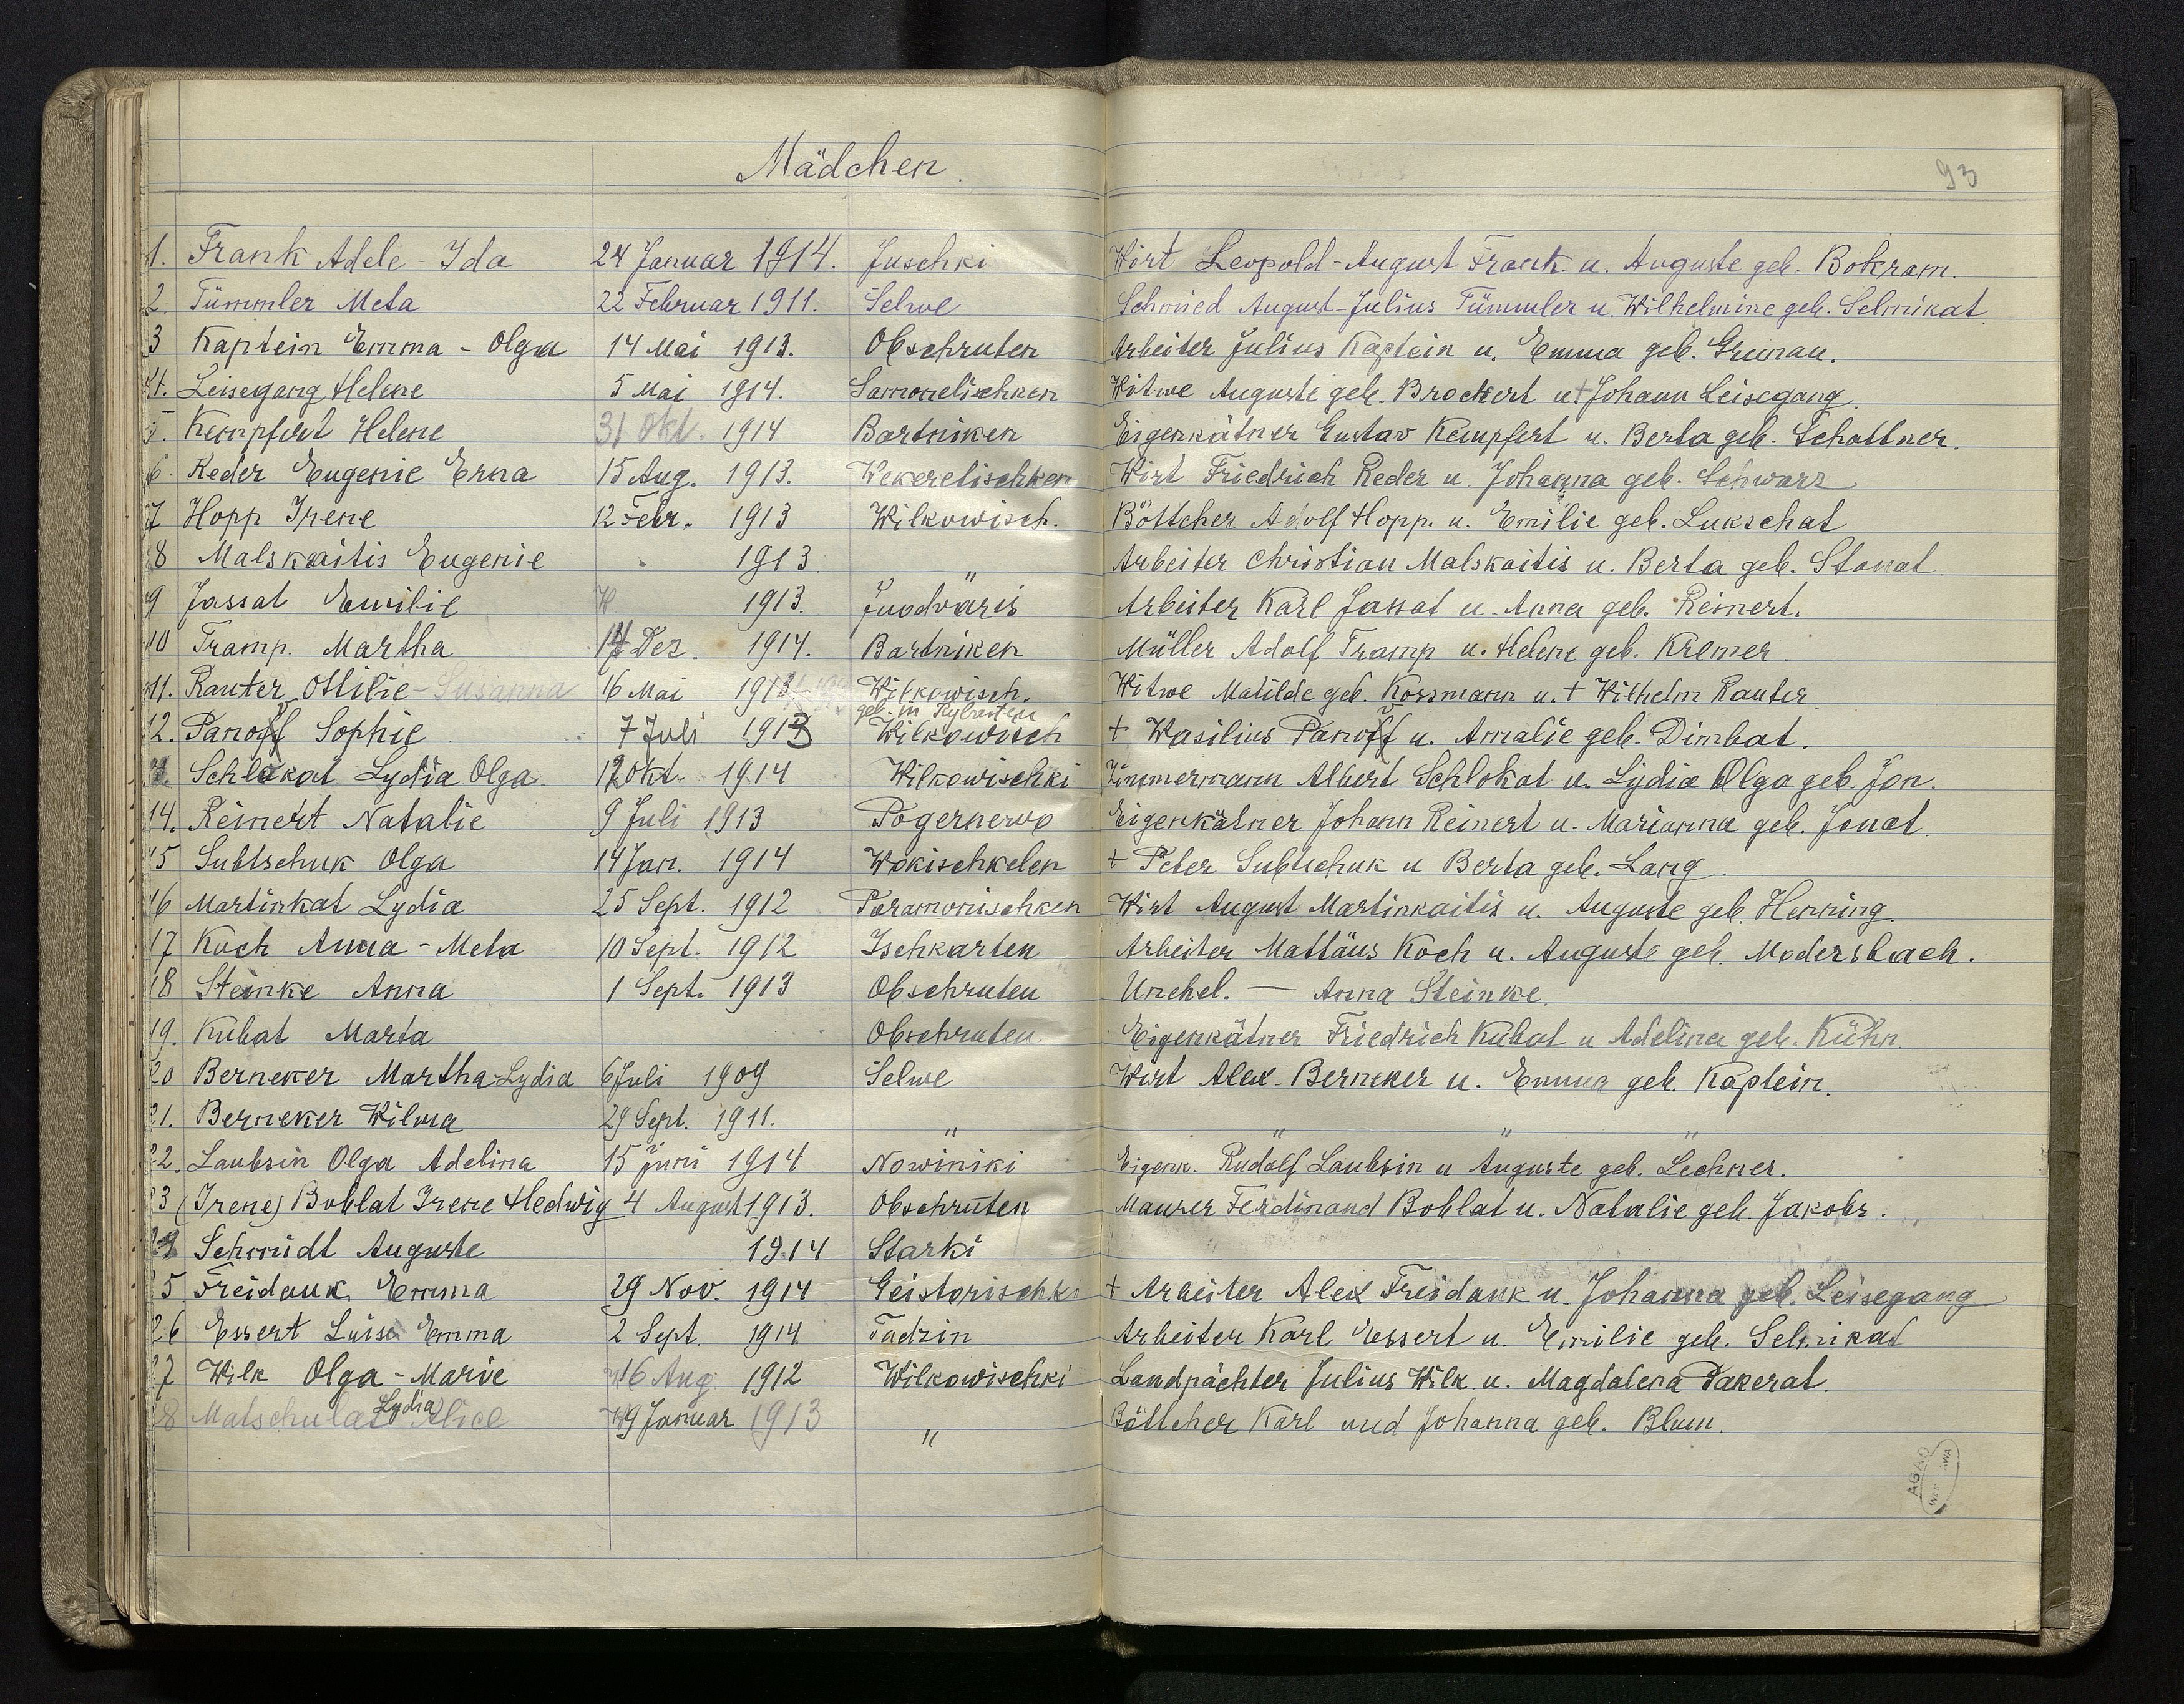 Mädchen.
93
1. Frank Adele - Ida 24 Januar 1914. Juschki Wirt Leopold-August Frank u. Auguste geb. Bokram.
2. Tümmler Meta 22 Februar 1911. Selwe Schmied August-Julius Tümmler u. Wilhelmine geb. Selmikat
3 Kaptein Emma - Olga 14 Mai 1913. Obschruten Arbeiter Julius Kaptein u. Emma geb. Grunau.
4. Leisegang Helene 5 Mai 1914. Samonelischken Witwe Auguste geb. Brockert u + Johann Leisegang.
5. Kempfert Helene 31 Okt. 1914 Bartniken Eigenkätner Gustav Kempfert u. Berta geb. Schattner.
6. Reder Eugenie Erna 15 Aug. 1913. Wekeretischken Wirt Friedrich Reder u. Johanna geb. Schwarz
7 Hopp Irene 12 Febr. 1913 Wilkowisch. Böttcher Adolf Hopp. u. Emilie geb. Lukschat
8 Malskaitis Eugenie 1913. " Arbeiter Christian Malskaitis u. Berta geb. Stonat
9 Jassat Emilie 1913. Juodvaris Arbeiter Karl Jassat u. Anna geb. Reinert.
10 Tramp Martha Dez. 1914. Bartniken Müller Adolf Tramp u. Helene geb. Kremer.
11. Rauter Ottilie - Susanna 16 Mai 1913 Wilkowisch. Witwe Matilde geb. Kossmann u. + Wilhelm Rauter.
geb. in
12. Panoff Sophie 7 Juli 1913 Wilkowisch + Wasilius Panoff u. Amalie geb. Dimbat.
Schlokat Lydia Olga. 12 Okt. 1914 Wilkowischki Zimmermann Albert Schlokat u. Lydia Olga geb. Jon.
14. Reinert Natalie 9 Juli 1913 Pogernewo Eigenkätner Johann Reinert u. Marianna geb. Jonat.
15 Subtschuk Olga 14 Jan. 1914 Wokischkelen + Peter Subtschuk u Berta geb. Lang.
16 Martinkat Lydia 25 Sept. 1912 Paramonischken Wirt August Martinkaitis u. Auguste geb. Henning.
17 Koch Anna - Meta 10 Sept. 1912 Ischkarten Arbeiter Mattäus Koch u. Auguste geb. Modersbach.
18 Steinke Anna 1 Sept. 1913 Obschruten Unehel. — Anna Steinke.
19. Kubat Marta Obschruten Eigenkätner Friedrich Kubat u Adelina geb. Kühn.
20 Berneker Martha-Lydia 6 Juli 1909 Selwe Wirt Alex. Berneker u. Emma geb. Kaptein.
21. Berneker Wilma 29 Sept. 1911. " " " "
22. Laubsin Olga Adelina 15 Juni 1914 Nowiniki Eigenk. Rudolf Laubsin u Auguste geb. Lechner.
23 (Irene) Boblat Irene Hedwig 4 August 1913. Obschruten Maurer Ferdinand Boblat u. Natalie geb. Jakobs.
24 Schmidt Auguste 1914 Starki
25 Freidank Emma 29 Nov. 1914 Geistorischki + Arbeiter Alex Freidank u. Johanna geb. Leisegang
26 Essert Luise Emma 2 Sept. 1914 Tadzin Arbeiter Karl Essert u. Emilie geb. Selmikat
27 Wilk Olga - Marie 16 Aug. 1912 Wilkowischki Landpächter Julius Wilk u. Magdalena Pakerat.
28 Matschulat Lydia Alice 19 Januar 1913 " Böttcher Karl und Johanna geb. Blum.
AGAD